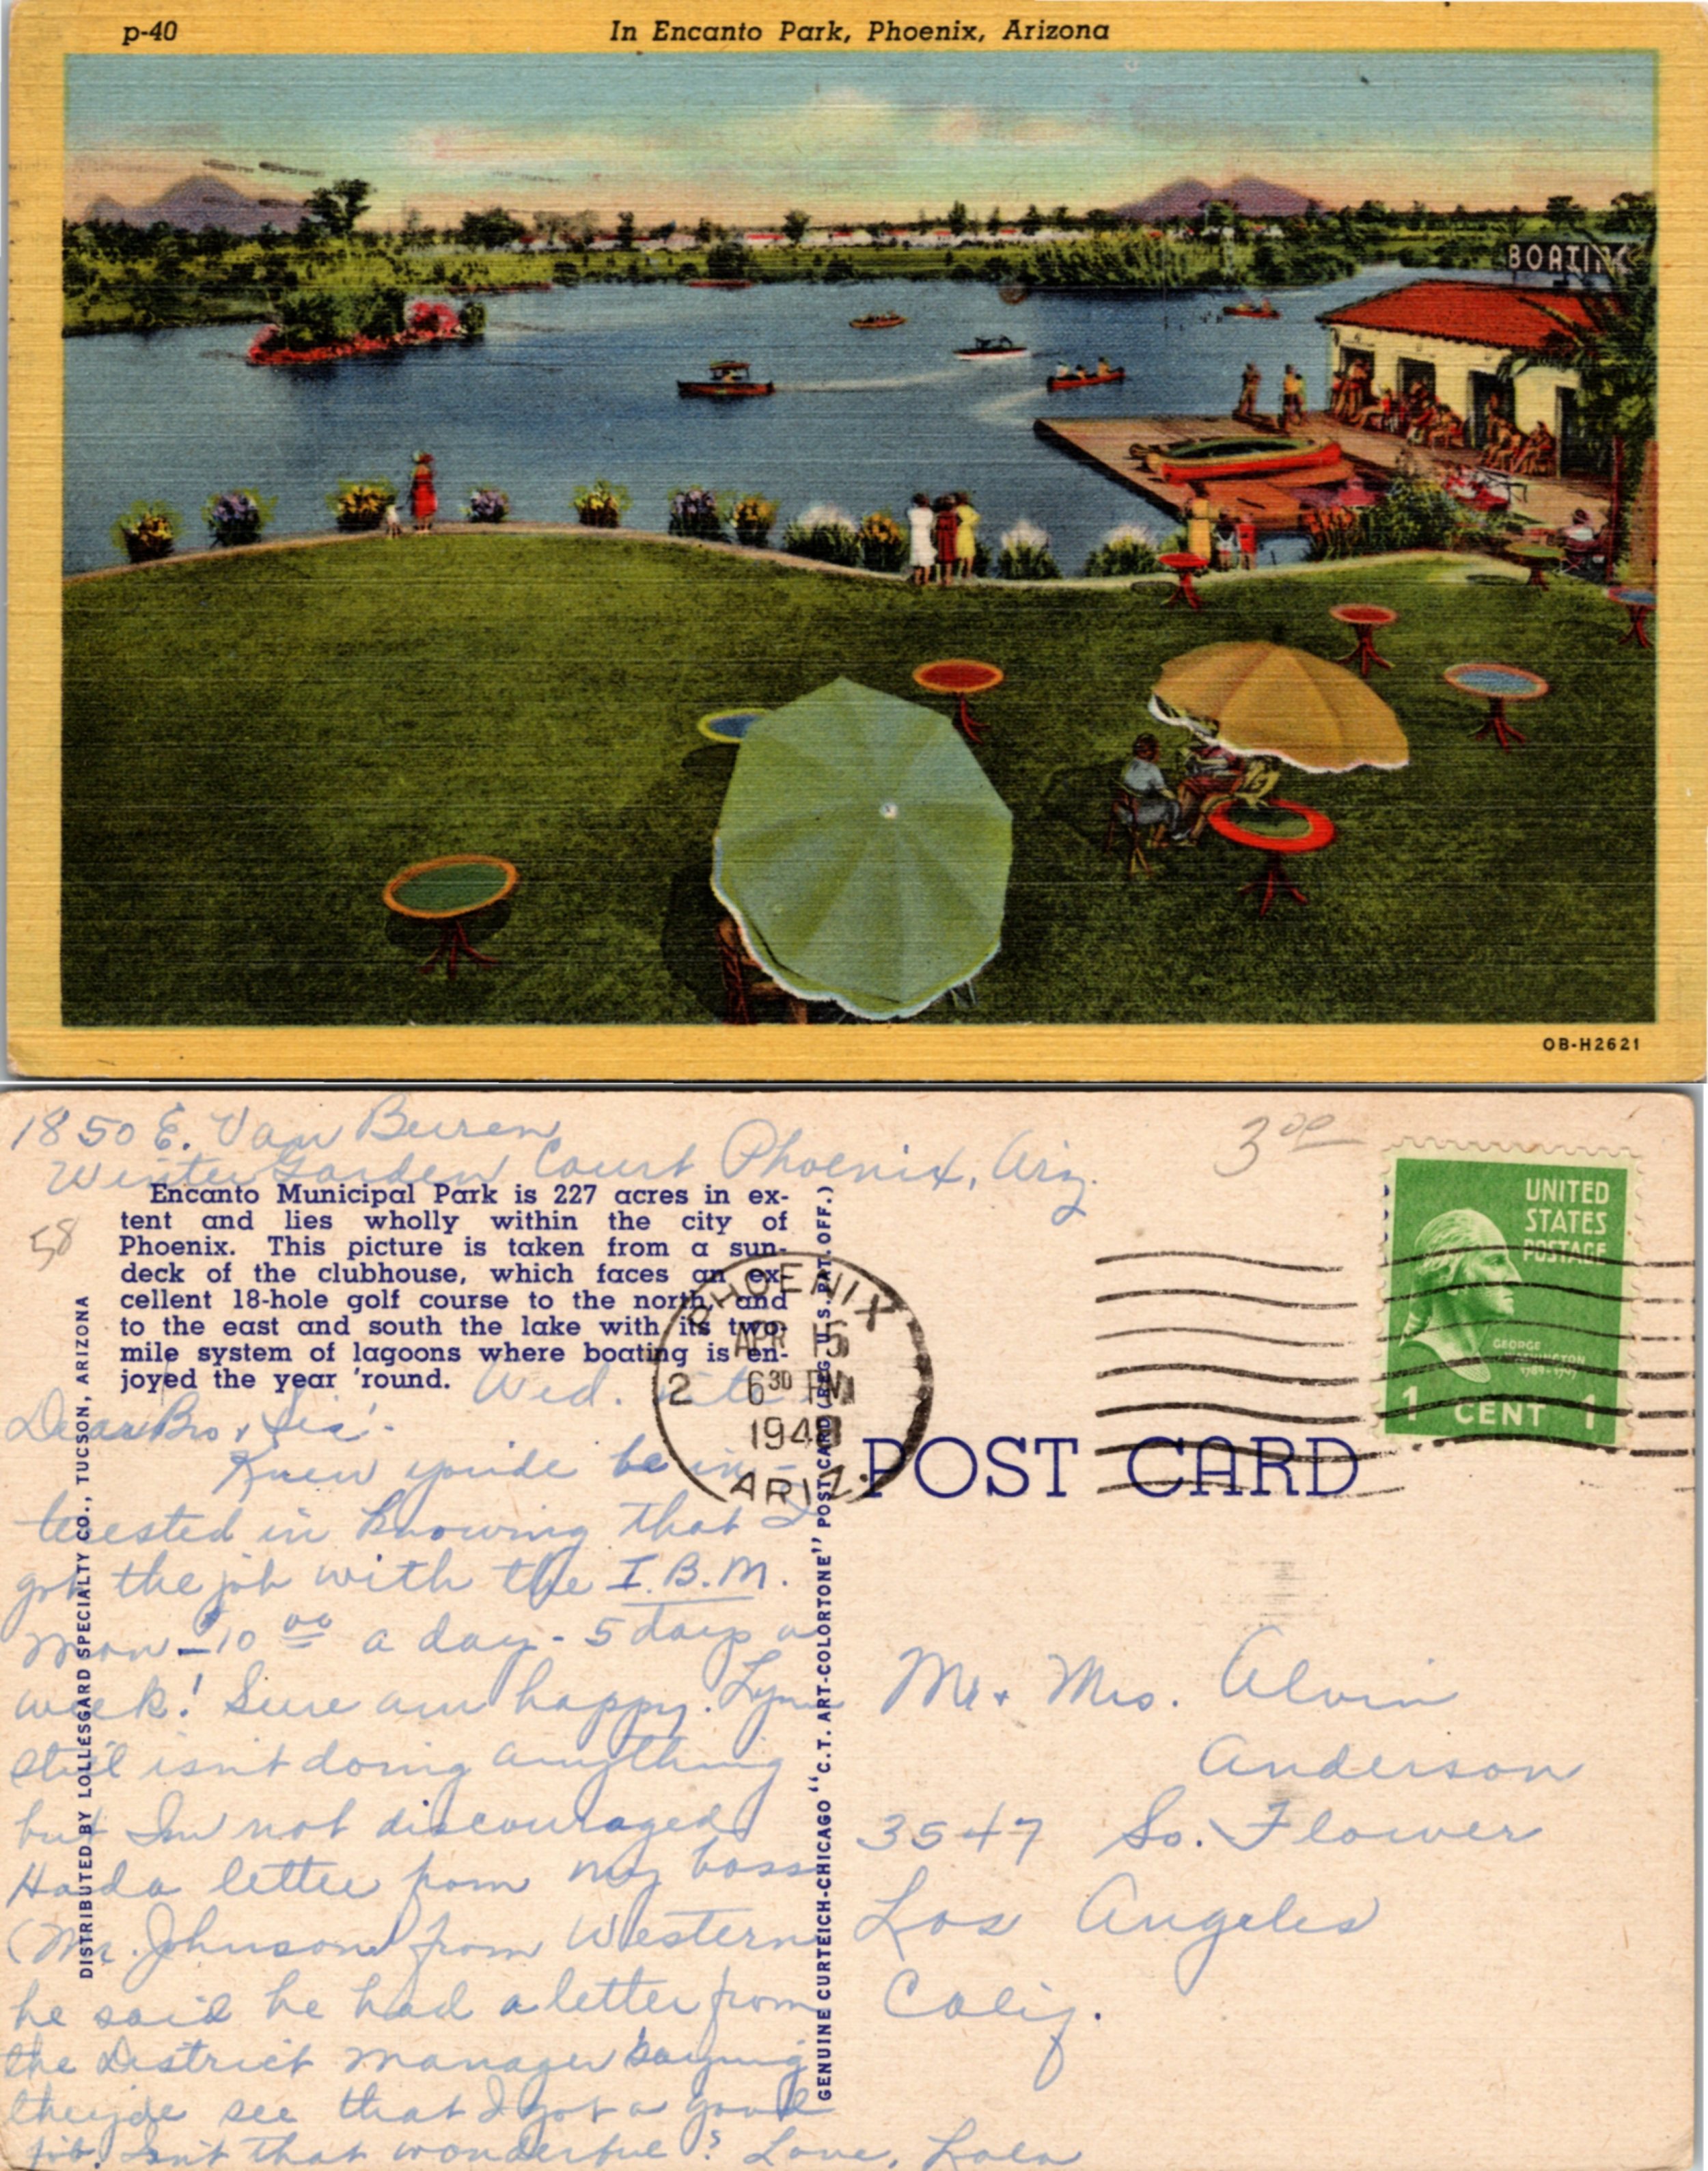 p-40
In Encanto Park, Phoenix, Arizona
BOATING
OB-H2621
1850 E. Van Buren
Winter Garden Court Phoenix, Ariz.
3.00
58
Encanto Municipal Park is 227 acres in ex-
tent and lies wholly within the city of
Phoenix. This picture is taken from a sun-
deck of the clubhouse, which faces an ex-
cellent 18-hole golf course to the north, and
to the east and south the lake with its two-
mile system of lagoons where boating is en-
joyed the year 'round.
DISTRIBUTED BY LOLLESGARD SPECIALTY CO., TUCSON, ARIZONA
GENUINE CURTEICH-CHICAGO "C.T. ART-COLORTONE" POST CARD (REG. U.S. PAT. OFF.)
PHOENIX
APR 15
2 6 30 PM
194
ARIZ.
UNITED
STATES
POSTAGE
GEORGE
WASHINGTON
1 CENT 1
POST CARD
Wed.
Dear Bro & Sis:-
Knew you'de be in-
terested in knowing that I
got the job with the I.B.M.
Mon - 10 00 a day - 5 days a
week! Sure am happy. Lynn
still isn't doing anything
but I'm not discouraged
Had a letter from my boss
(Mr. Johnson from Western
he said he had a letter from
the District manager saying
they'de see that I got a good
job. Isn't that wonderful? Love, Lola
Mr. & Mrs. Alvin
Anderson
3547 So. Flower
Los Angeles
Calif.